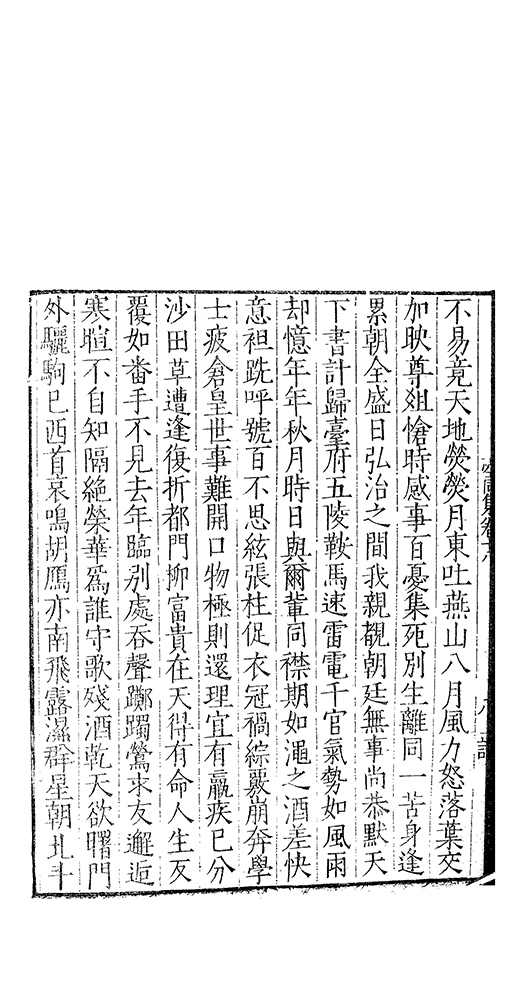 不易竟天地熒熒月東吐燕山八月風力怒落葉交
加映尊俎愴時感事百憂集死別生離同一苦身逢
累朝全盛日弘治之間我親覩朝廷無事尚恭默天
下書計歸臺府五陵鞍馬速雷電千官氣勢如風雨
却憶年年秋月時日與爾輩同襟期如澠之酒差快
意袒跣呼號百不思絃張柱促衣冠禍綜覈崩奔學
士疲倉皇世事難開口物極則還理宜有羸疾已分
沙田草遭逢復折都門柳富貴在天得有命人生反
覆如番手不見去年臨別處吞聲躑躅鶯求友邂逅
寒暄不自知隔絶榮華爲誰守歌殘酒乾天欲曙門
外驪駒已西首哀鳴胡鴈亦南飛露濕群星朝北斗